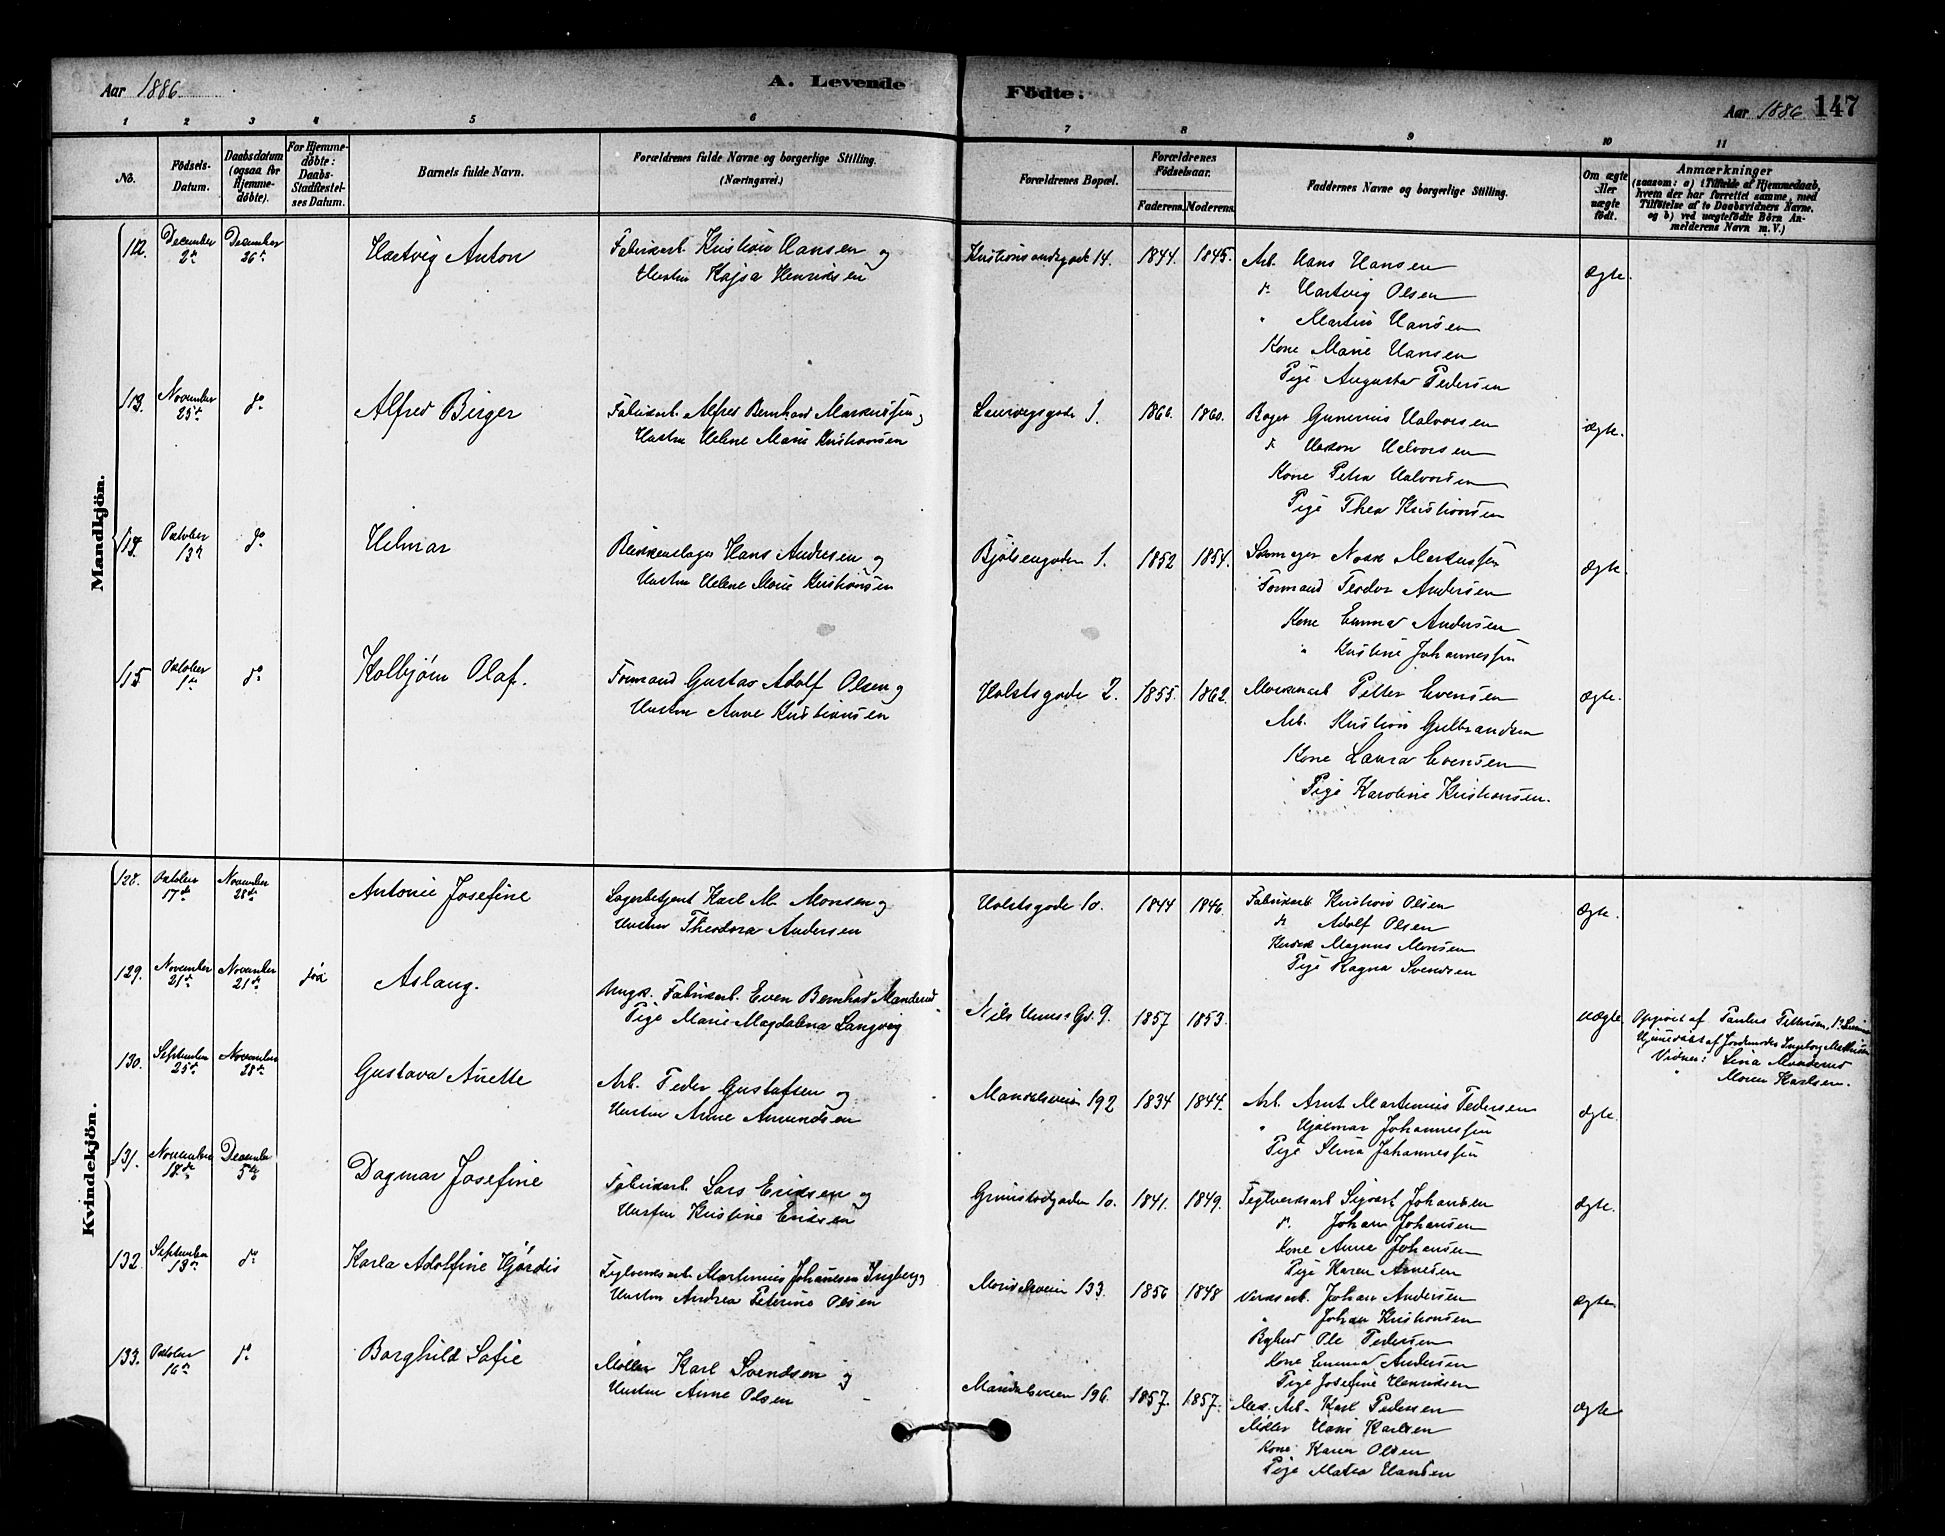 Aar 1886.
A. Levende
Födte.
Aar 1886
147
1 2 3 4 5 6 7 8 9 10 11
No.
Födsels-
Datum.
Daabsdatum
(ogsaa for
Hjemme-
döbte).
For Hjemme-
döbte:
Daabs-
Stadfæstel-
ses Datum.
Barnets fulde Navn.
Forældrenes fulde Navne og borgerlige Stilling.
(Næringsvei.)
Forældrenes Bopæl.
Forældrenes
Födselsaar.
Faderens. Moderens.
Faddernes Navne og borgerlige Stilling.
Om ægte
eller
uægte
födt.
Anmærkninger
(saasom: a) i Tilfælde af Hjemmedaab,
hvem der har forrettet samme, med
Tilföielse af to Daabsvidners Navne.
og b) ved uægtefödte Börn An-
melderens Navn m. V.)
Mandkjön.
112. December 2d. December 26d.
Hartvig Anton
Fabrikarb. Kristian Hansen og
Hustru Kajsa Henriksen
Kristiansandsgade 14. 1844. 1845.
Arb. Hans Hansen
do Hartvig Olsen
" Martin Hansen
Kone Marie Hansen
Pige Augusta Pedersen
ægte.
113. November 25d. do
Alfred Birger
Fabrikarb. Alfred Bernhard Markussen og
Hustru Helene Marie Kristiansen
Laurvigsgade 1. 1860. 1860.
Bager Gunerius Halvorsen
do Haakon Halvorsen
Kone Petra Halvorsen
Pige Thea Kristiansen
ægte.
114. October 13d. do
Hilmar
Blikkenslager Hans Andersen og
Hustru Helene Marie Kristiansen
Bjölsengaden 1. 1852 1854.
Markussen
Formand Teodor Andersen
Kone Emma Andersen
" Kristine Johannessen
ægte.
115 October 1d. do
Kolbjörn Olaf.
Formand Gustav Adolf Olsen og
Hustru Anne Kristiansen
Holstsgade 2. 1855. 1862.
Petter Evensen
Arb. Kristian Gulbrandsen
Kone Laura Evensen
Pige Karoline Kristiansen.
ægte.
Kvindekjön.
128. October 17de November 28de
Antonie Josefine
Lagerbetjent Karl M. Monsen og
Hustru Theodora Andersen
Holstsgade 10. 1844 1846.
Fabrikarb. Kristian Olsen
do Adolf Olsen
Magnus Monsen
Pige Ragna Svendsen
ægte.
129. November 21de November 21de
Aslaug.
Ungk. Fabrikarb. Even Bernhard Manderud
Pige Marie Magdalena Langvig
9. 1857 1853.
uægte
Opgivet af Paulus Pettersen,
Hjemmedöbt af Jordemoder Ingeborg Mathisen
Vidner: Lina Manderud
" Maren Karlsen.
130. September 25de November 28de
Gustava Anette
Arb. Peder Gustafsen og
Hustru Anne Amundsen
Maridalsveien 192 1834 1844.
Arb. Arnt Martinius Pedersen
" Hjalmar Johannessen
Pige Stina Johannessen
ægte.
131. November 18de December 5te
Dagmar Josefine
Fabrikarb. Lars Eriksen og
Hustru Kristine Eriksen
Grimstadgaden 10. 1841. 1849.
Teglverksarb. Sigvart Johansen
do. Johan Johansen
Kone Anna Johansen
Pige Karen Arnesen
ægte.
132. September 13de do
Karla Adolfine Hjördis
Teglverksarb. Martinius Johansen Ingberg og
Hustru Andrea Peterine Olsen
Maridalsveien 133. 1856 1848
Verksarb. Johan Andersen
" Johan Kristiansen
Ole Pedersen
Kone Emma Andersen
Pige Josefine Henriksen
ægte
133. October 16de do
Borghild Sofie
Möller Karl Svendsen og
Hustru Anne Olsen
Maridalsveien 196. 1857. 1857.
Arb. Karl Pedersen
Möller Hans Karlsen
Kone Karen Olsen
Pige Matea Hansen
ægte